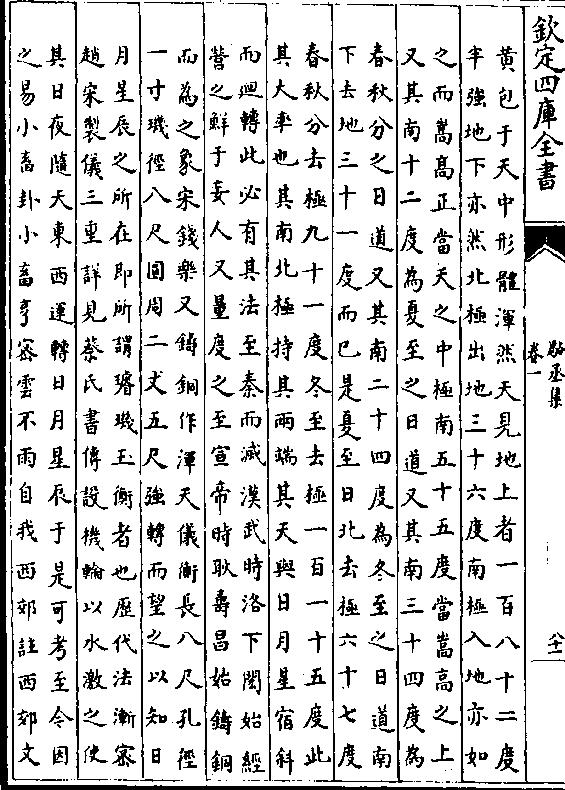 欽定四庫全書
卷一
八十二
黄包于天中形體渾然天見地上者一百八十二度
半強地下亦然北極出地三十六度南極入地亦如
之而嵩髙正當天之中極南五十五度當嵩高之上
又其南十二度為夏至之日道又其南三十四度為
春秋分之日道又其南二十四度為冬至之日道南
下去地三十一度而已是夏至日北去極六十七度
春秋分去極九十一度冬至去極一百一十五度此
其大率也其南北極持其兩端其天與日月星宿斜
而廻轉此必有其法至秦而滅漢武時洛下閎始經
營之鮮于妄人又量度之至宣帝時耿壽昌始鑄銅
而為之象宋錢樂又鑄銅作渾天儀衡長八尺孔徑
一寸璣徑八尺圓周二丈五尺強轉而望之以知日
月星辰之所在即所謂璿璣玉衡者也歷代法漸宻
趙宋製儀三重詳見蔡氏書傳設機輪以水激之使
其日夜隨天東西運轉日月星辰于是可考至今因
之易小畜卦小畜亨宻雲不雨自我西郊註西郊文